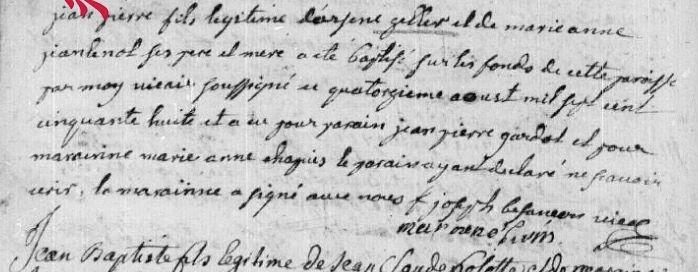 jean pierre fils legitime d'arsene gellet et de marie anne
jeantenot ses pere et mere a eté baptisé sur les fonds de cette paroisse
par moy vicair soussigné ce quatorzieme aoust mil sept cent
cinquante huite et a eu pour parain jean pierre gardot et pour
marainne marie anne chapuis le parain ayant declaré ne scavoir
ecrir, la marainne a signé avec nous f joseph besancon vicair
marianne
Jean Baptiste fils legitime de Jean Claude et de